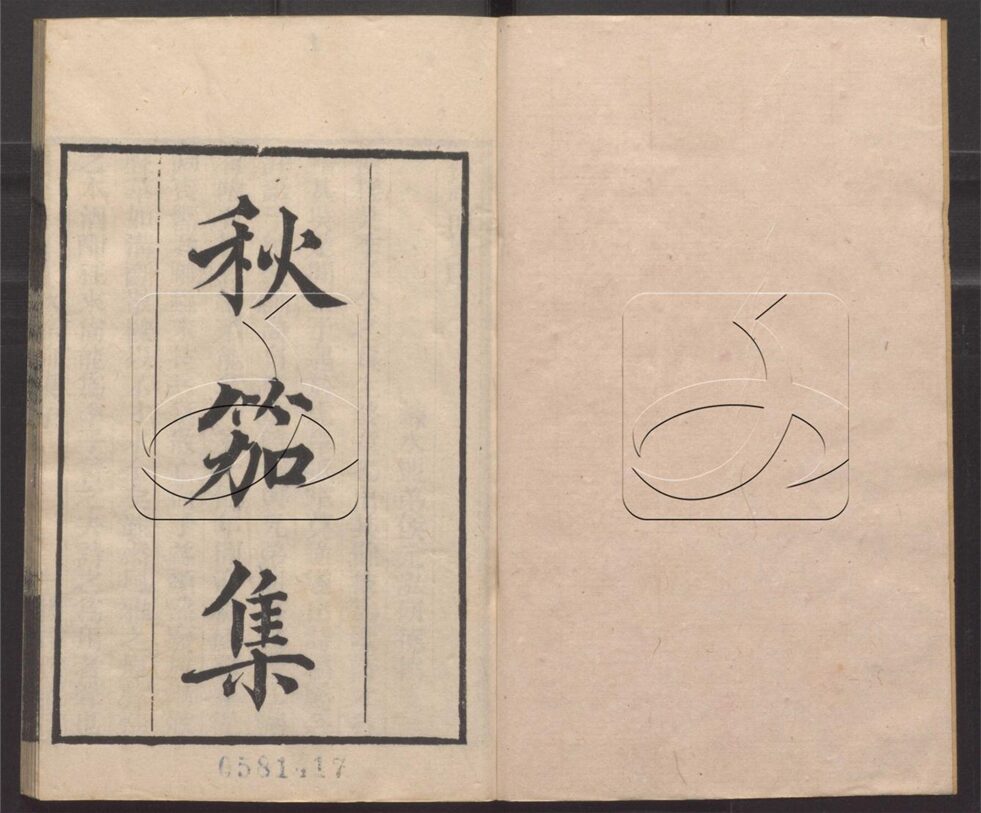 秋笳集
0581417